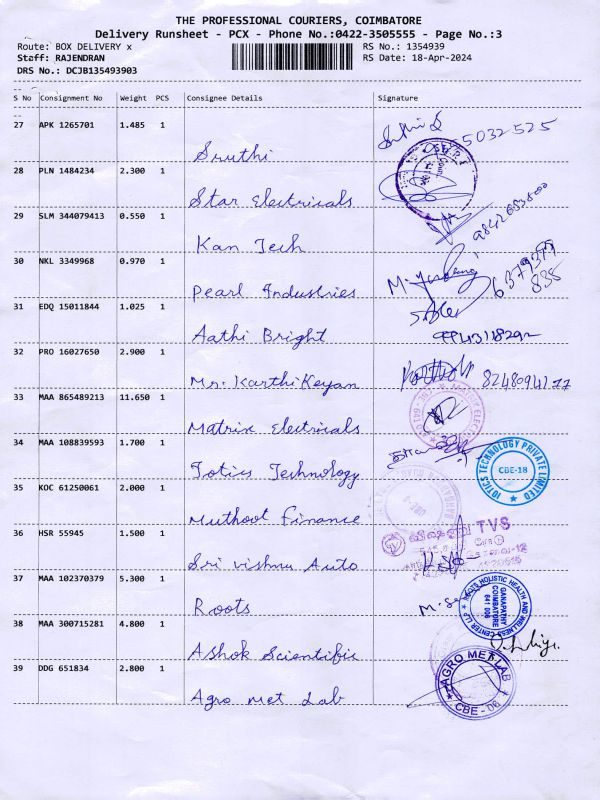 THE PROFESSIONAL COURIERS, COIMBATORE
Delivery Runsheet - PCX - Phone No.:0422-3505555 - Page No.:3
Route: BOX DELIVERY x RS No.: 1354939
Staff: RAJENDRAN RS Date: 18-Apr-2024
DRS No.: DCJB135493903
S No Consignment No Weight PCS Consignee Details Signature
27 APK 1265701 1.485 1
Sruthi 5032525
28 PLN 1484234 2.300 1
Star Electricals
29 SLM 344079413 0.550 1
Kan Tech
30 NKL 3349968 0.970 1
Pearl Industries 6379379
835
31 EDQ 15011844 1.025 1
Aathi Bright
32 PRO 16027650 2.900 1
Mr. KarthiKeyan 8248094177
33 MAA 865489213 11.650 1
Matrix Electricals
34 MAA 108839593 1.700 1
Iotics Technology IOTICS TECHNOLOGY PRIVATE LIMITED
CBE-18
35 KOC 61250061 2.000 1
Muthoot Finance
36 HSR 55945 1.500 1
TVS
Sri vishnu Auto
37 MAA 102370379 5.300 1
Roots ROOTS HOLISTIC HEALTH AND WELLNESS CENTER LLP
GANAPATHY
COIMBATORE
641 006
38 MAA 300715281 4.800 1
Ashok Scientific
39 DDG 651834 2.800 1
Agro Met Lab AGRO MET LAB
CBE-06